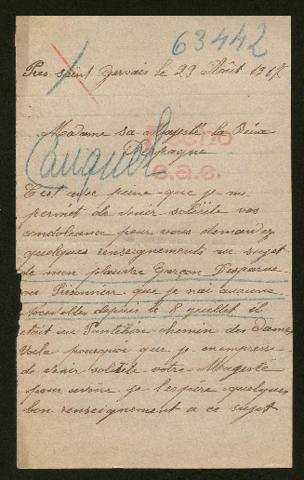 63442
Pres Saint Gervais le 29 Août 1917
Madame sa Majesté la Reine
D'Espagne
C'est avec peine que je me
permet de venir solicité vos
condoleance pour vous demandez
quelques renseignements au sujet
de mon pauvre Garçon Disparue
ou Prisonnier que je n'ai aucune
nouvelles depuis le 8 juillet il
était au Panthéon chemin des Dames
Voila pourquoi que je m'empres
de venir solicité votre Magesté
pour avoir je l'espère quelques
bon renseignement a ce sujet